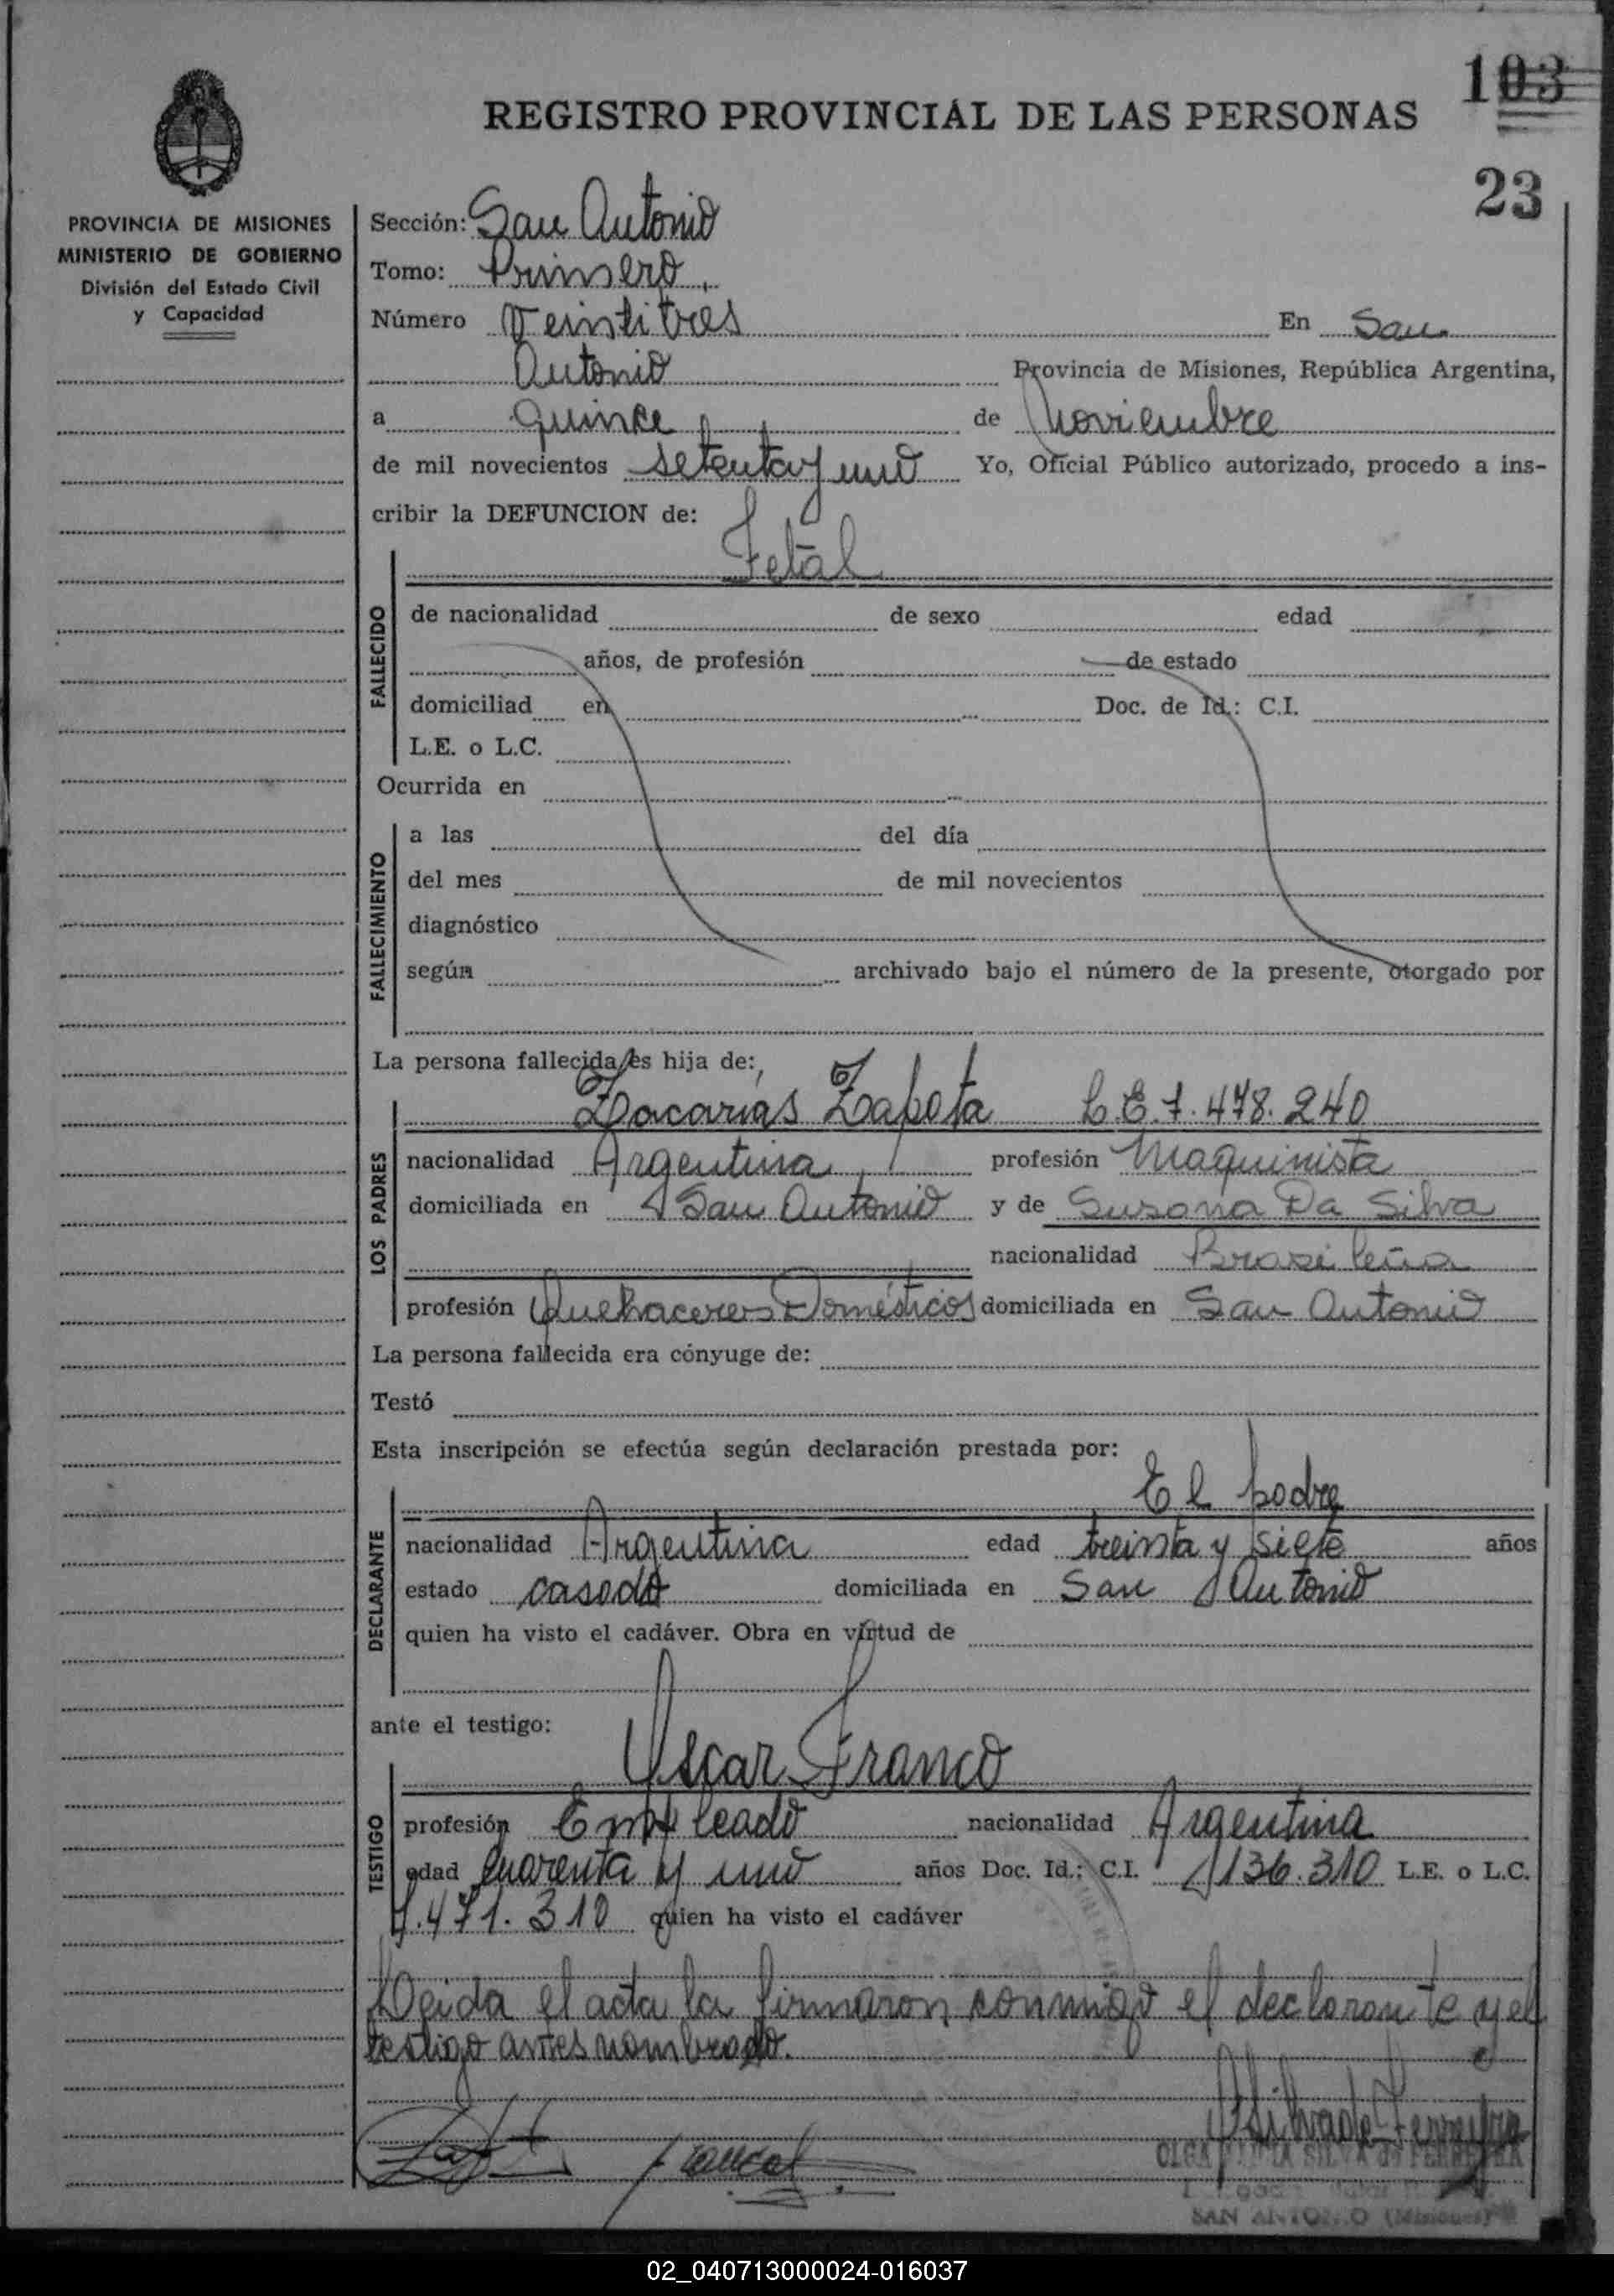 103
REGISTRO PROVINCIAL DE LAS PERSONAS
23
PROVINCIA DE MISIONES
MINISTERIO DE GOBIERNO
División del Estado Civil
y Capacidad
Sección: San Antonio
Tomo: Primero
Número Veintitres En San
Antonio Provincia de Misiones, República Argentina,
a quince de Noviembre
de mil novecientos setenta y uno Yo, Oficial Público autorizado, procedo a ins-
cribir la DEFUNCION de:
Fetal
FALLECIDO
de nacionalidad de sexo edad
años, de profesión de estado
domiciliad en Doc. de Id.: C.I.
L.E. o L.C.
Ocurrida en
FALLECIMIENTO
a las del día
del mes de mil novecientos
diagnóstico
según archivado bajo el número de la presente, otorgado por
La persona fallecida es hija de:
LOS PADRES
Zacarias Zapata L.E. 7.478.240
nacionalidad Argentina profesión Maquinista
domiciliada en San Antonio y de Susana Da Silva
nacionalidad Brasileña
profesión Quehaceres Domésticos domiciliada en San Antonio
La persona fallecida era cónyuge de:
Testó
Esta inscripción se efectúa según declaración prestada por:
El padre
DECLARANTE
nacionalidad Argentina edad treinta y siete años
estado casado domiciliada en San Antonio
quien ha visto el cadáver. Obra en virtud de
ante el testigo:
Oscar Franco
TESTIGO
profesión Empleado nacionalidad Argentina
edad Cuarenta y uno años Doc. Id.: C.I. 136.310 L.E. o L.C.
7.471.310 quien ha visto el cadáver
Leida el acta la firmaron conmigo el declarante y el
testigo antes nombrado.
OLGA SILVA de FERREYRA
SAN ANTONIO (Misiones)
02_040713000024-016037